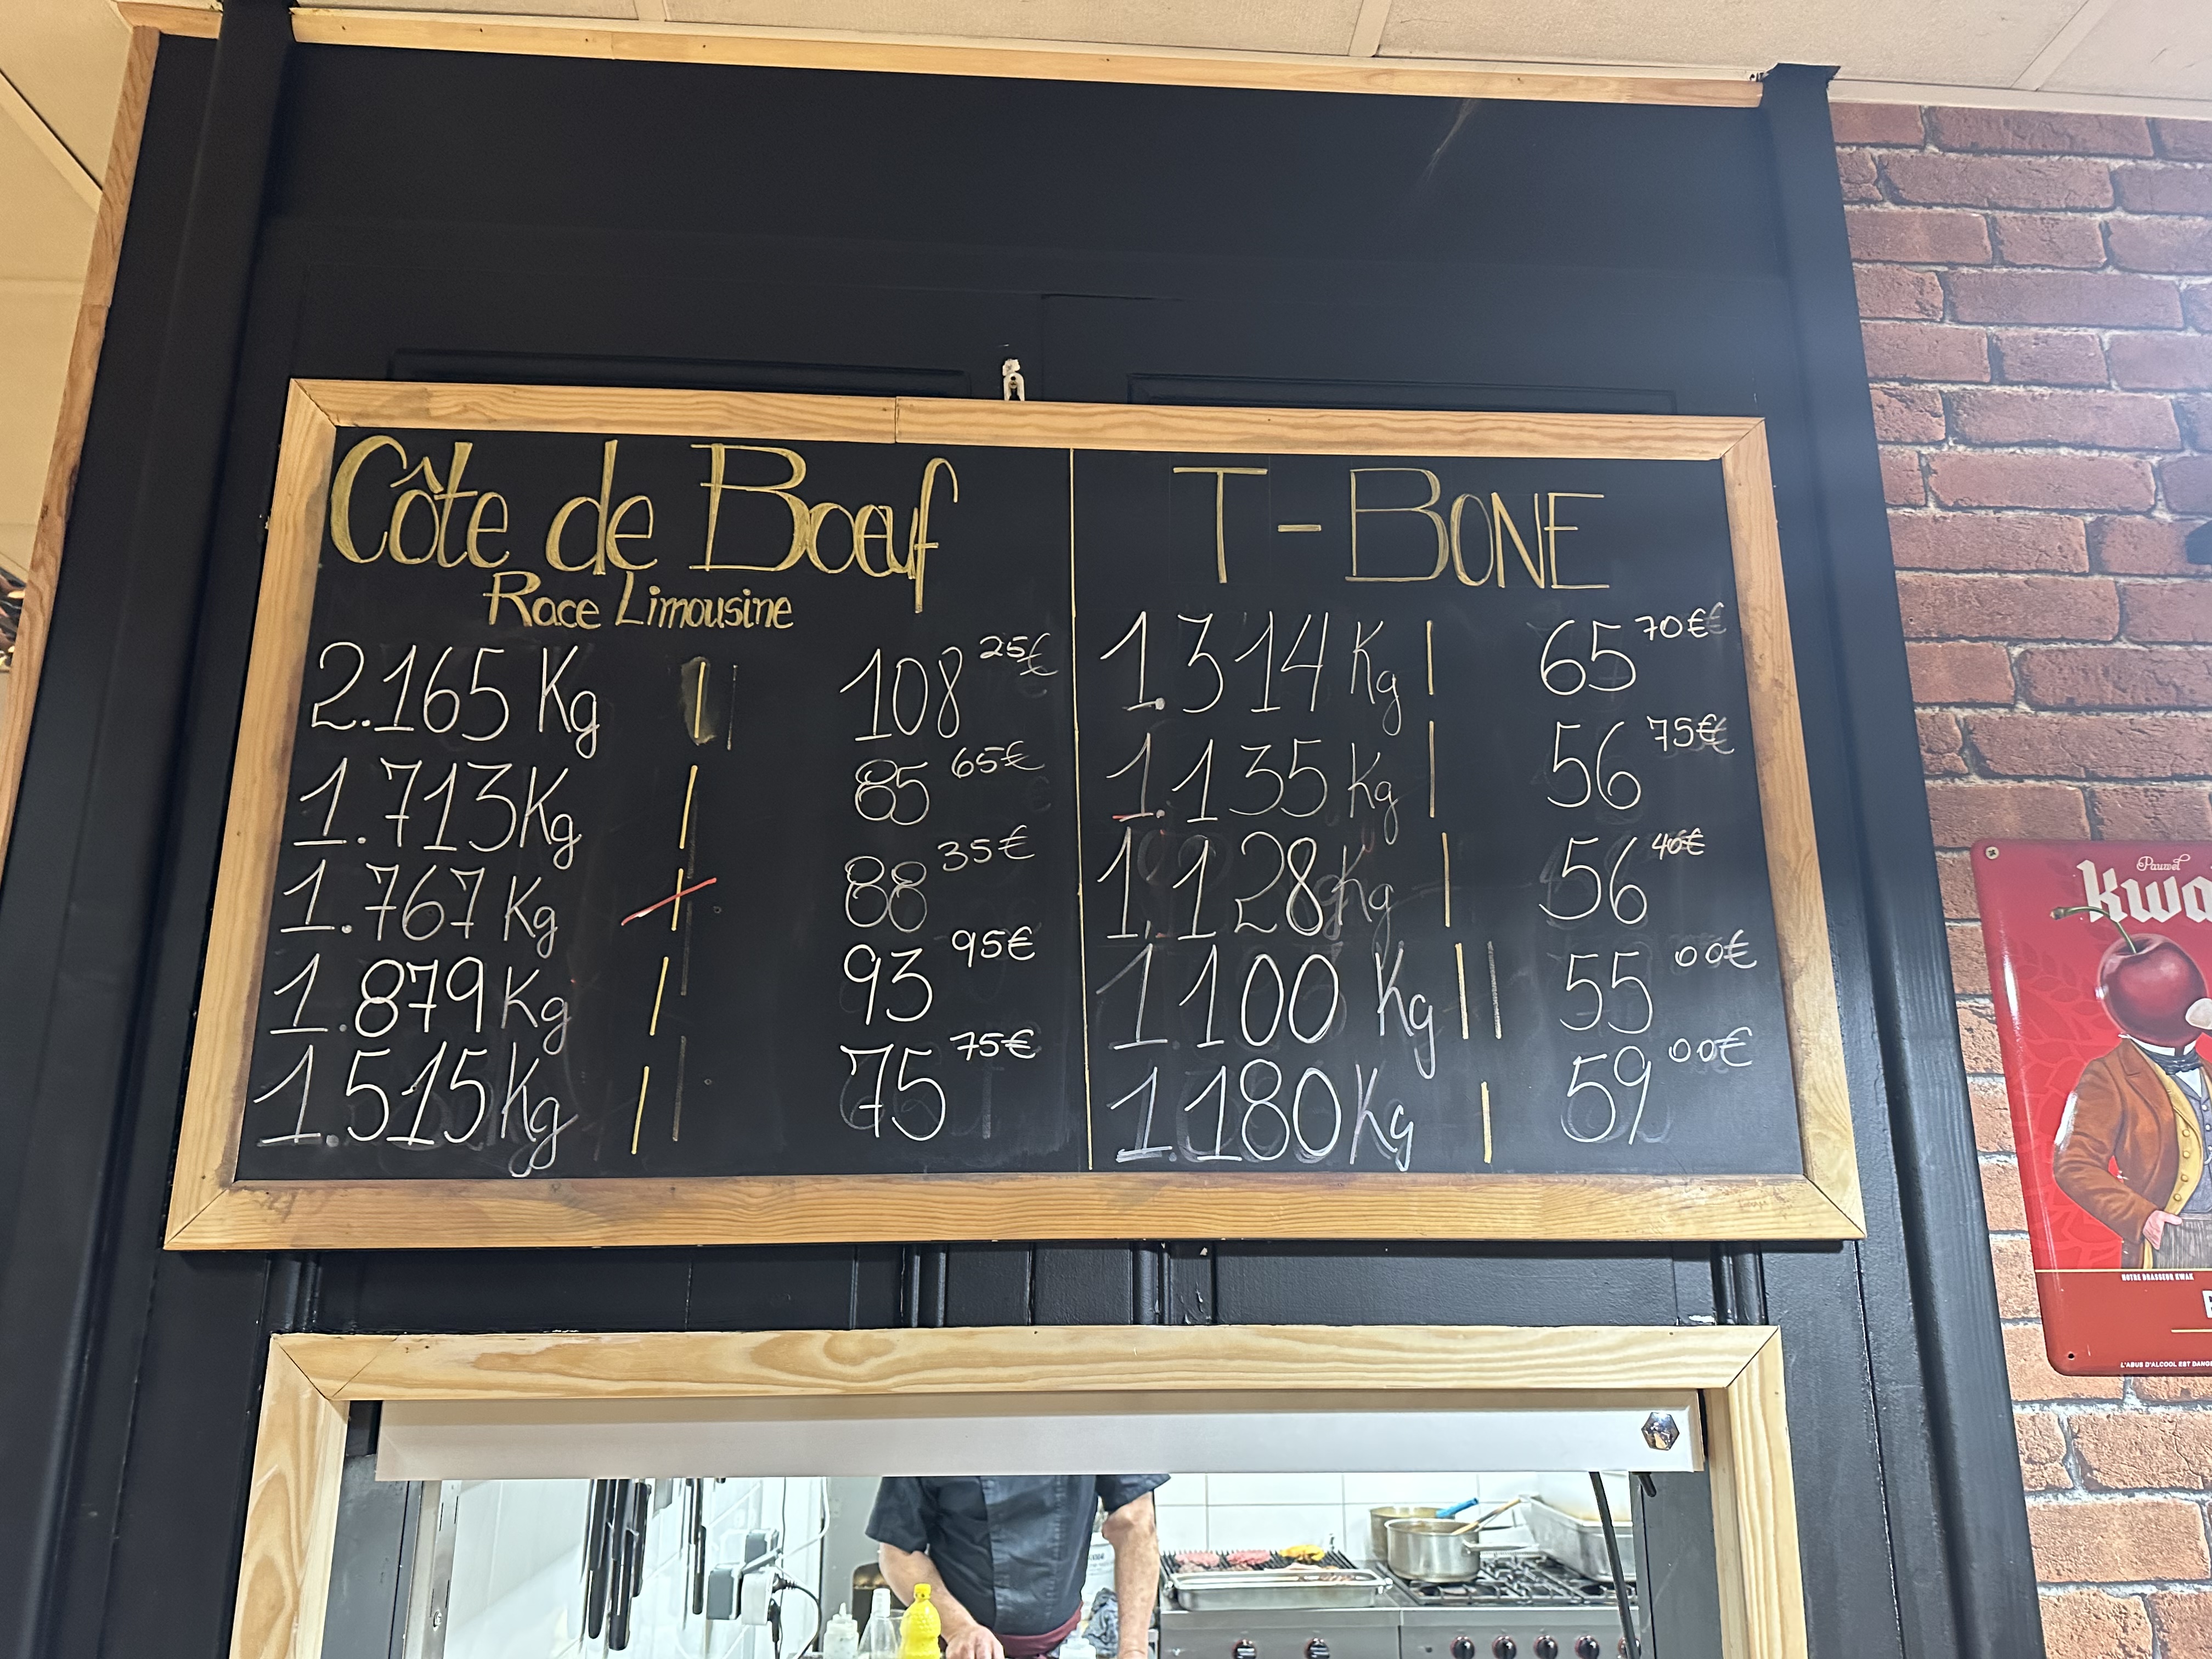 Côte de Boeuf
Race Limousine
2.165 Kg | 108 25€
1.713 Kg | 85 65€
1.767 Kg | 88 35€
1.879 Kg | 93 95€
1.515 Kg | 75 75€
T-BONE
1.314 Kg | 65 70€
1.135 Kg | 56 75€
1.128 Kg | 56 40€
1.100 Kg | 55 00€
1.180 Kg | 59 00€
Pauwel
kwa
NOTRE BRASSEUR KWAK
L'ABUS D'ALCOOL EST DANG